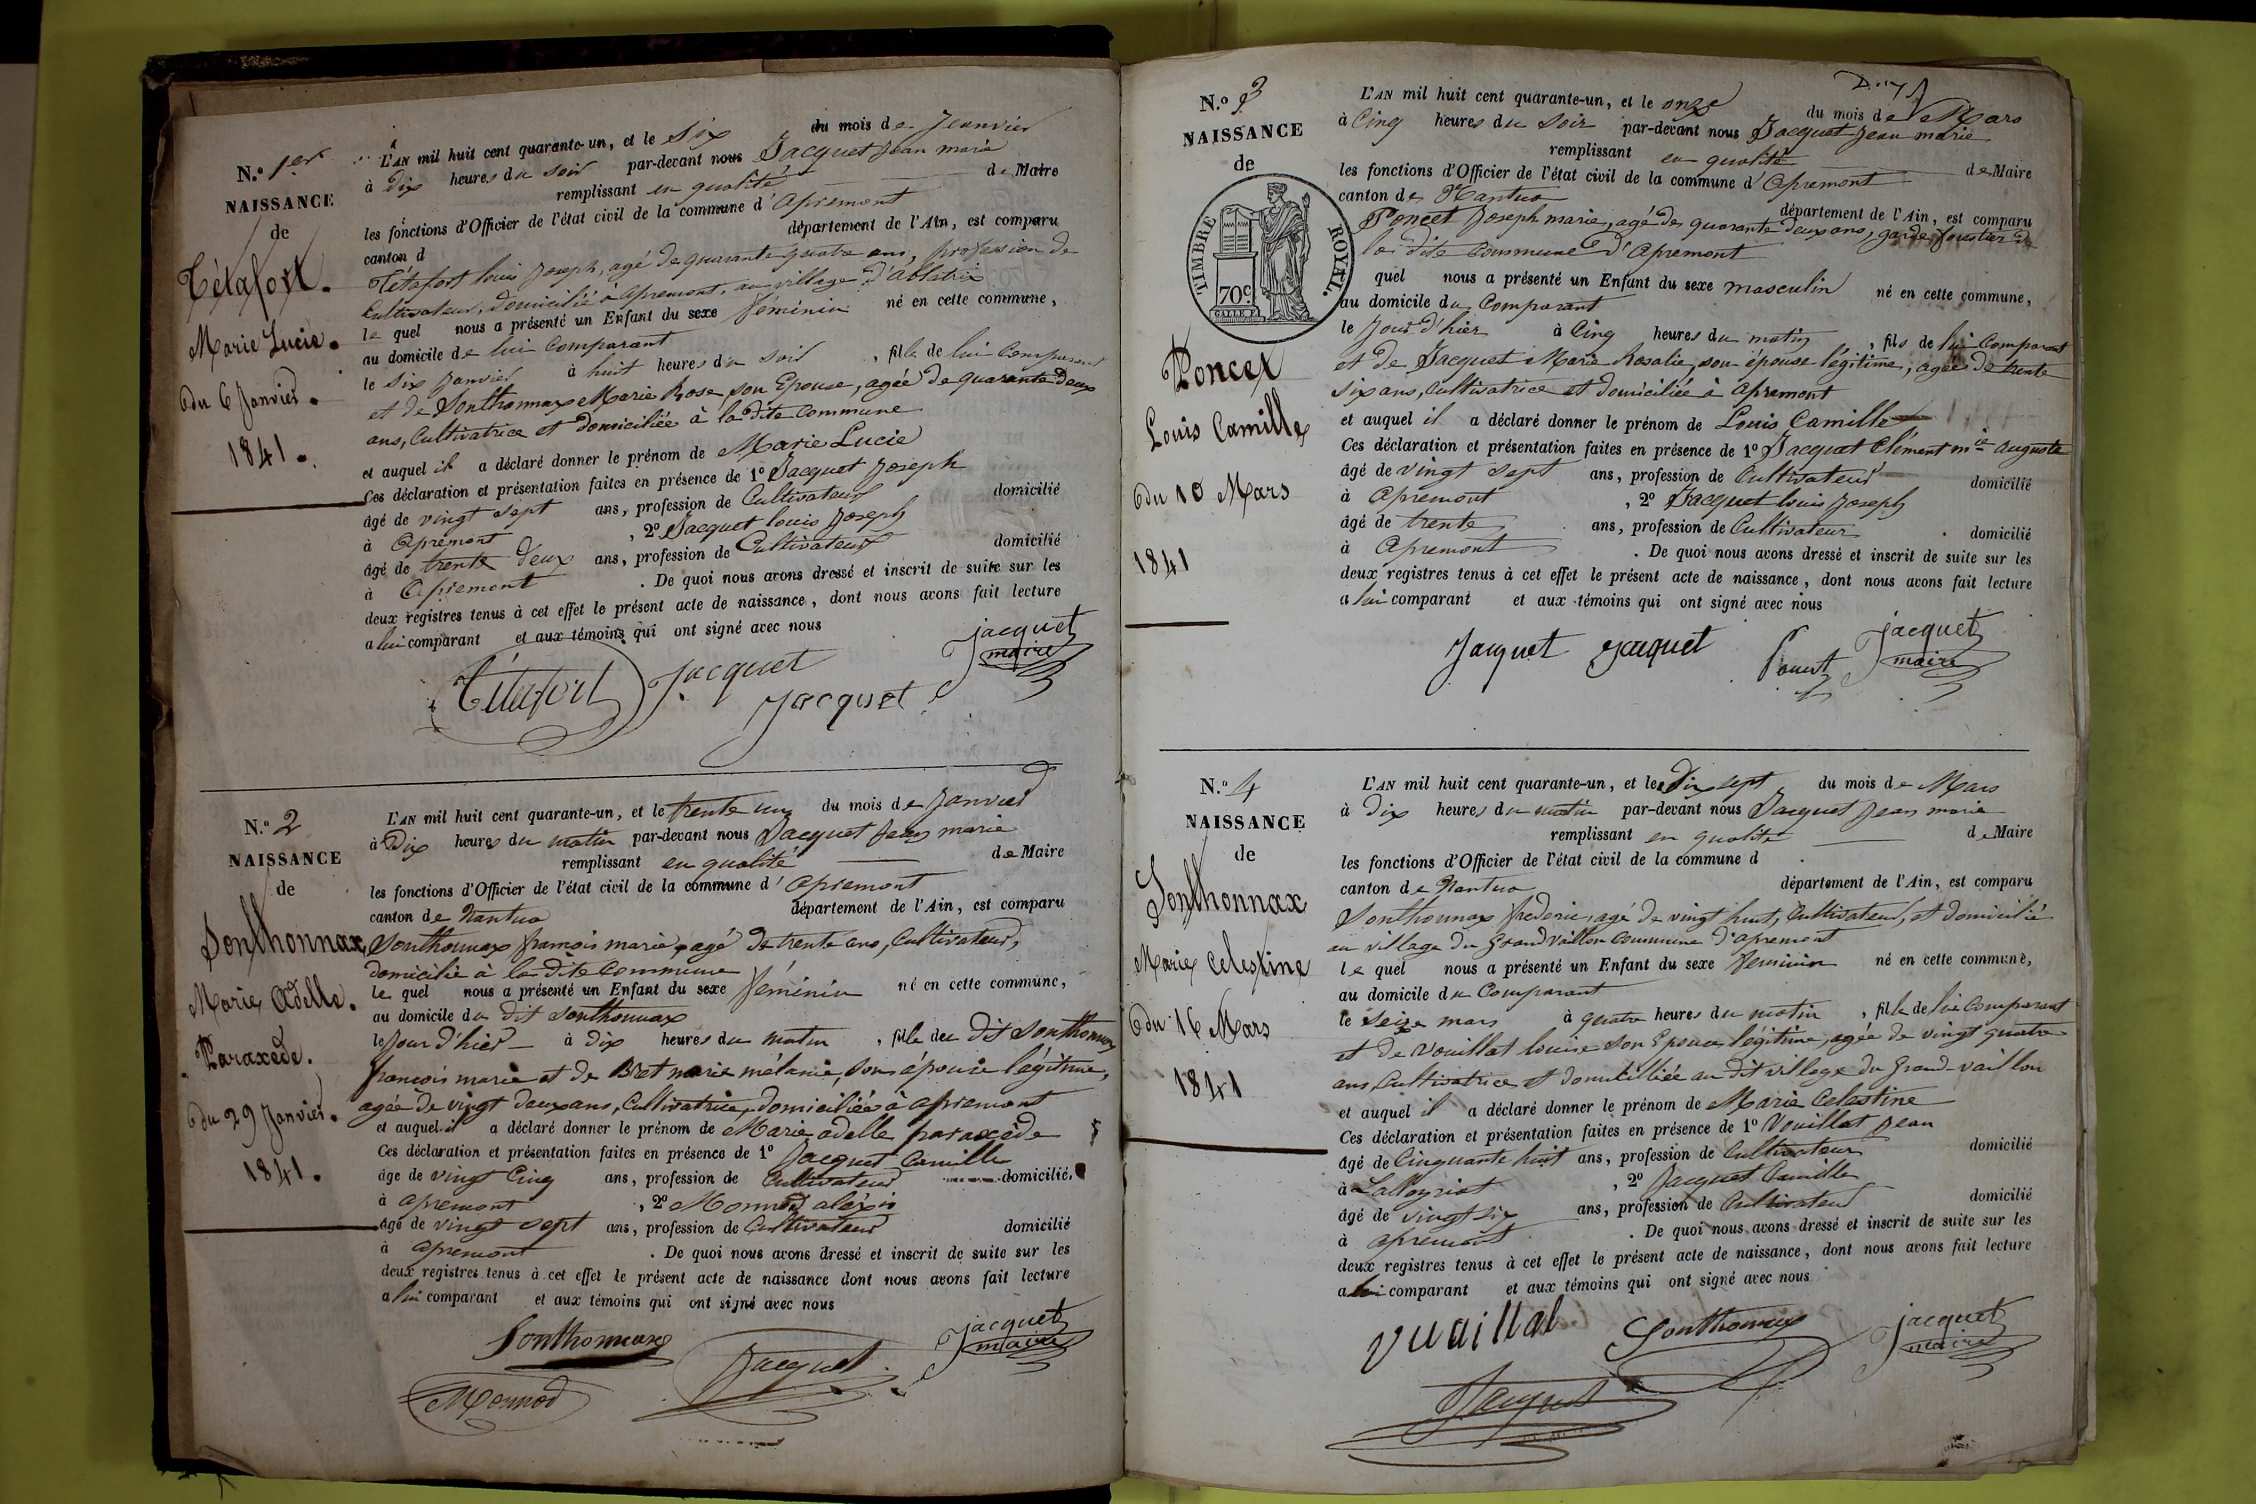 N.o 1er
NAISSANCE
de
Tétafort.
Marie Lucie.
du 6 Janvier.
1841.
L'AN mil huit cent quarante-un, et le Six du mois de Jeanvier
à dix heures du soir par-devant nous Jacquet Jean marie
remplissant en qualité de Maire
les fonctions d'Officier de l'état civil de la commune d'Apremont
canton d département de l'Ain, est comparu
Tétafort louis Joseph, agé de quarante quatre ans, profession de
Cultivateur, domicilié à apremont, au village d'
le quel nous a présenté un Enfant du sexe féminin né en cette commune,
au domicile de lui Comparant
le six Janvier à huit heures du soir, fille de lui Comparant
et de Sonthonnax Marie Rose son Epouse, agée de quarante deux
ans, Cultivatrice et domiciliée à la dite Commune
et auquel il a déclaré donner le prénom de Marie Lucie
Ces déclaration et présentation faites en présence de 1o Jacquet Joseph
âgé de vingt sept ans, profession de Cultivateur domicilié
à Apremont, 2o Jacquet louis Joseph
âgé de trente deux ans, profession de Cultivateur domicilié
à Apremont. De quoi nous avons dressé et inscrit de suite sur les
deux registres tenus à cet effet le présent acte de naissance, dont nous avons fait lecture
a lui comparant et aux témoins qui ont signé avec nous
Tétafort Jacquet Jacquet jacquet maire
N.o 2
NAISSANCE
de
Sonthonnax
Marie Adelle.
Paraxède.
du 29 Janvier.
1841.
L'AN mil huit cent quarante-un, et le trente un du mois de Janvier
à Dix heures du matin par-devant nous Jacquet Jean marie
remplissant en qualité de Maire
les fonctions d'Officier de l'état civil de la commune d'apremont
canton de Nantua département de l'Ain, est comparu
Sonthonnax françois marie, agé de trente ans, Cultivateur,
domicilié à la dite Commune
le quel nous a présenté un Enfant du sexe féminin né en cette commune,
au domicile du dit Sonthonnax
le Jour d'hier à dix heures du matin, fille du dit Sonthonnax
françois marie et de Bret marie mélanie, son épouse légitime,
agée de vingt deux ans, Cultivatrice, domiciliée à apremont
et auquel il a déclaré donner le prénom de Marie adelle paraxède
Ces déclaration et présentation faites en présence de 1o Jacquet Camille
âge de vingt Cinq ans, profession de Cultivateur domicilié.
à apremont, 2o Monnod aléxis
âgé de vingt sept ans, profession de Cultivateur domicilié
à apremont. De quoi nous avons dressé et inscrit de suite sur les
deux registres tenus à cet effet le présent acte de naissance dont nous avons fait lecture
a lui comparant et aux témoins qui ont signé avec nous
Sonthonnax Jacquet jacquet maire
Monnod
N.o 3
NAISSANCE
de
TIMBRE ROYAL.
70c
Poncet
Louis Camille
du 10 Mars
1841
L'AN mil huit cent quarante-un, et le onze du mois de Mars
à Cinq heures du soir par-devant nous Jacquet Jean marie
remplissant en qualité de Maire
les fonctions d'Officier de l'état civil de la commune d'Apremont
canton de Nantua département de l'Ain, est comparu
Poncet Joseph marie, agé de quarante deux ans, garde forestier
la dite Commune d'Apremont
quel nous a présenté un Enfant du sexe masculin né en cette commune,
au domicile du Comparant
le Jour d'hier à Cinq heures du matin, fils de lui Comparant
et de Jacquet Marie Rosalie, son épouse légitime, agée de trente
six ans, Cultivatrice et domiciliée à Apremont
et auquel il a déclaré donner le prénom de Louis Camille
Ces déclaration et présentation faites en présence de 1o Jacquet Clément mie auguste
âgé de vingt sept ans, profession de Cultivateur domicilié
à Apremont, 2o Jacquet louis Joseph
âgé de trente ans, profession de Cultivateur domicilié
à Apremont. De quoi nous avons dressé et inscrit de suite sur les
deux registres tenus à cet effet le présent acte de naissance, dont nous avons fait lecture
a lui comparant et aux témoins qui ont signé avec nous
Jacquet Jacquet Poncet jacquet maire
N.o 4
NAISSANCE
de
Sonthonnax
Marie Celestine
du 16 Mars
1841
L'AN mil huit cent quarante-un, et le Dix sept du mois de Mars
à Dix heures du matin par-devant nous Jacquet Jean marie
remplissant en qualité de Maire
les fonctions d'Officier de l'état civil de la commune d
canton de Nantua département de l'Ain, est comparu
Sonthonnax frederic, agé de vingt huit, Cultivateur, et domicilié
au village du Grand vaillon Commune d'apremont
le quel nous a présenté un Enfant du sexe feminin né en cette commune,
au domicile du Comparant
le seize mars à quatre heures du matin, fille de lui Comparant
et de Vouillat louise son Epouse légitime, agée de vingt quatre
ans, Cultivatrice et domiciliée au dit village du Grand-vaillon
et auquel il a déclaré donner le prénom de Marie Celestine
Ces déclaration et présentation faites en présence de 1o Vouillat Jean
âgé de Cinquante huit ans, profession de Cultivateur domicilié
à Lalleyriat, 2o Jacquet Camille
âgé de vingt six ans, profession de Cultivateur domicilié
à apremont. De quoi nous avons dressé et inscrit de suite sur les
deux registres tenus à cet effet le présent acte de naissance, dont nous avons fait lecture
a lui comparant et aux témoins qui ont signé avec nous
vuaillat Sonthonnax jacquet maire
Jacquet